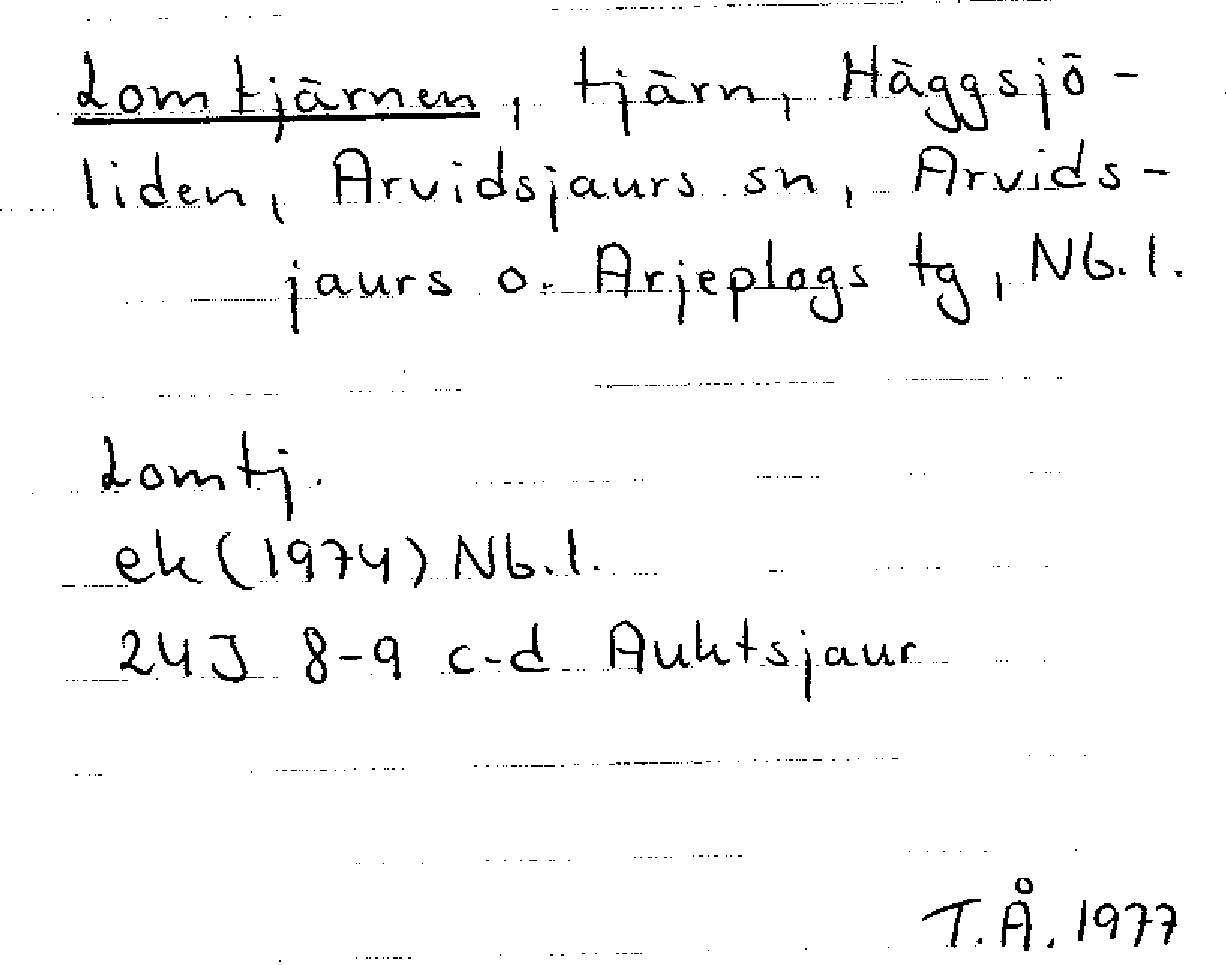 Lomtjärnen, tjärn, Häggsjö-
liden, Arvidsjaurs sn, Arvids-
jaurs o. Arjeplogs tg, Nb.l.
Lomtj.
ek (1974) Nb.l.
24J 8-9 c-d Auktsjaur
T.Å. 1977